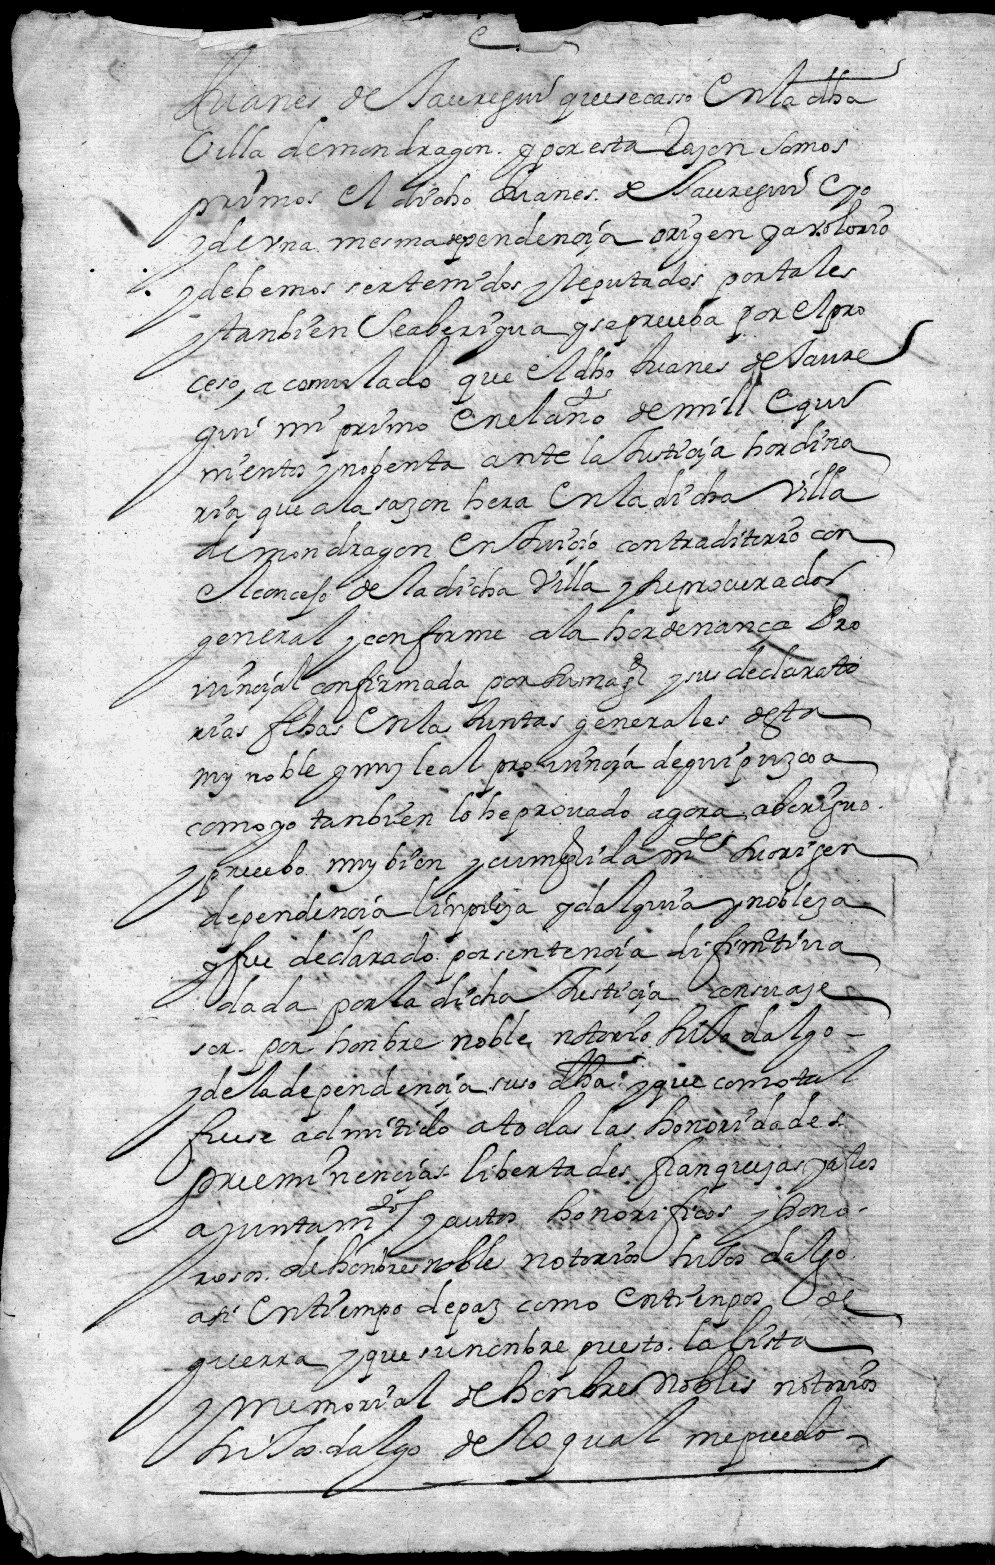 Juanes de Jauregui que se casso En la dha
Villa de mondragon. y por esta Razon somos
primos El dicho Juanes. de Jauregui E yo
y de vna mesma dependencia origen y abolorio
y debemos ser tenidos y Reputados por tales
y tanbien Se aberigua y se prueba por El pro
ceso, acomulado que El dho Juanes de Jaure
gui mi primo En el año de mill E quini
nientos y nobenta ante la Justicia hordina
ria que a la sazon hera En la dicha Villa
de mondragon En Juicio contraditorio con
El concejo de la dicha Villa y su procurador
general y conforme a la hordenança Pro
uincial confirmada por su magd y sus declarato
rias fhas En la Juntas generales desta
muy noble y muy leal prouincia de guipuzcoa
como yo tanbien lo he prouado agora, aberiguo.
y pruebo muy bien y cumplidamte su origen
dependencia linpieza ydalguia y nobleza
y fue declarado por sentencia difinitiua
dada por la dicha Justicia con su aje
sor. por honbre noble, notorio hijo dalgo
y de la dependencia suso dha. y que como tal
fuese admitido a todas las honoridades
preeminencias libertades, franquezas y a los
ajuntamtos y autos honorificos y hono
rosos. de honbres nobles notorios hijos dalgo
asi En tiempo de paz como En tienpos de
guerra y que su nonbre puesto. la lista
y memorial de honbres nobles notorios
hijos dalgo de lo qual me puedo